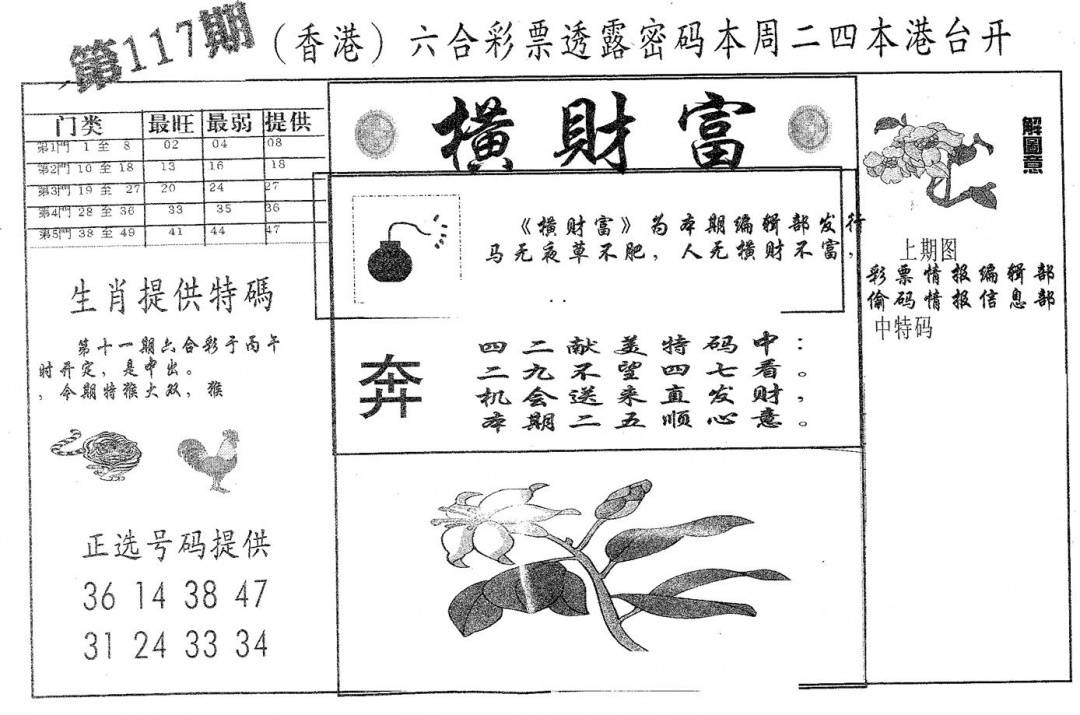 第117期
（香港）六合彩票透露密码本周二四本港台开
门类 最旺 最弱 提供
第1門 1 至 8 02 04 08
第2門 10 至 18 13 16 18
第3門 19 至 27 20 24 27
第4門 28 至 36 33 35 36
第5門 38 至 49 41 44 47
生肖提供特碼
第十一期六合彩于丙午
时开定，是中出。
，今期特猴大双，猴
正选号码提供
36 14 38 47
31 24 33 34
橫財富
《横财富》为本期编辑部发行
马无夜草不肥，人无横财不富，
奔
四二献美特码中：
二九不望四七看。
机会送来直发财，
本期二五顺心意。
解圖意
上期图
彩票情报编辑部
偷码情报信息部
中特码